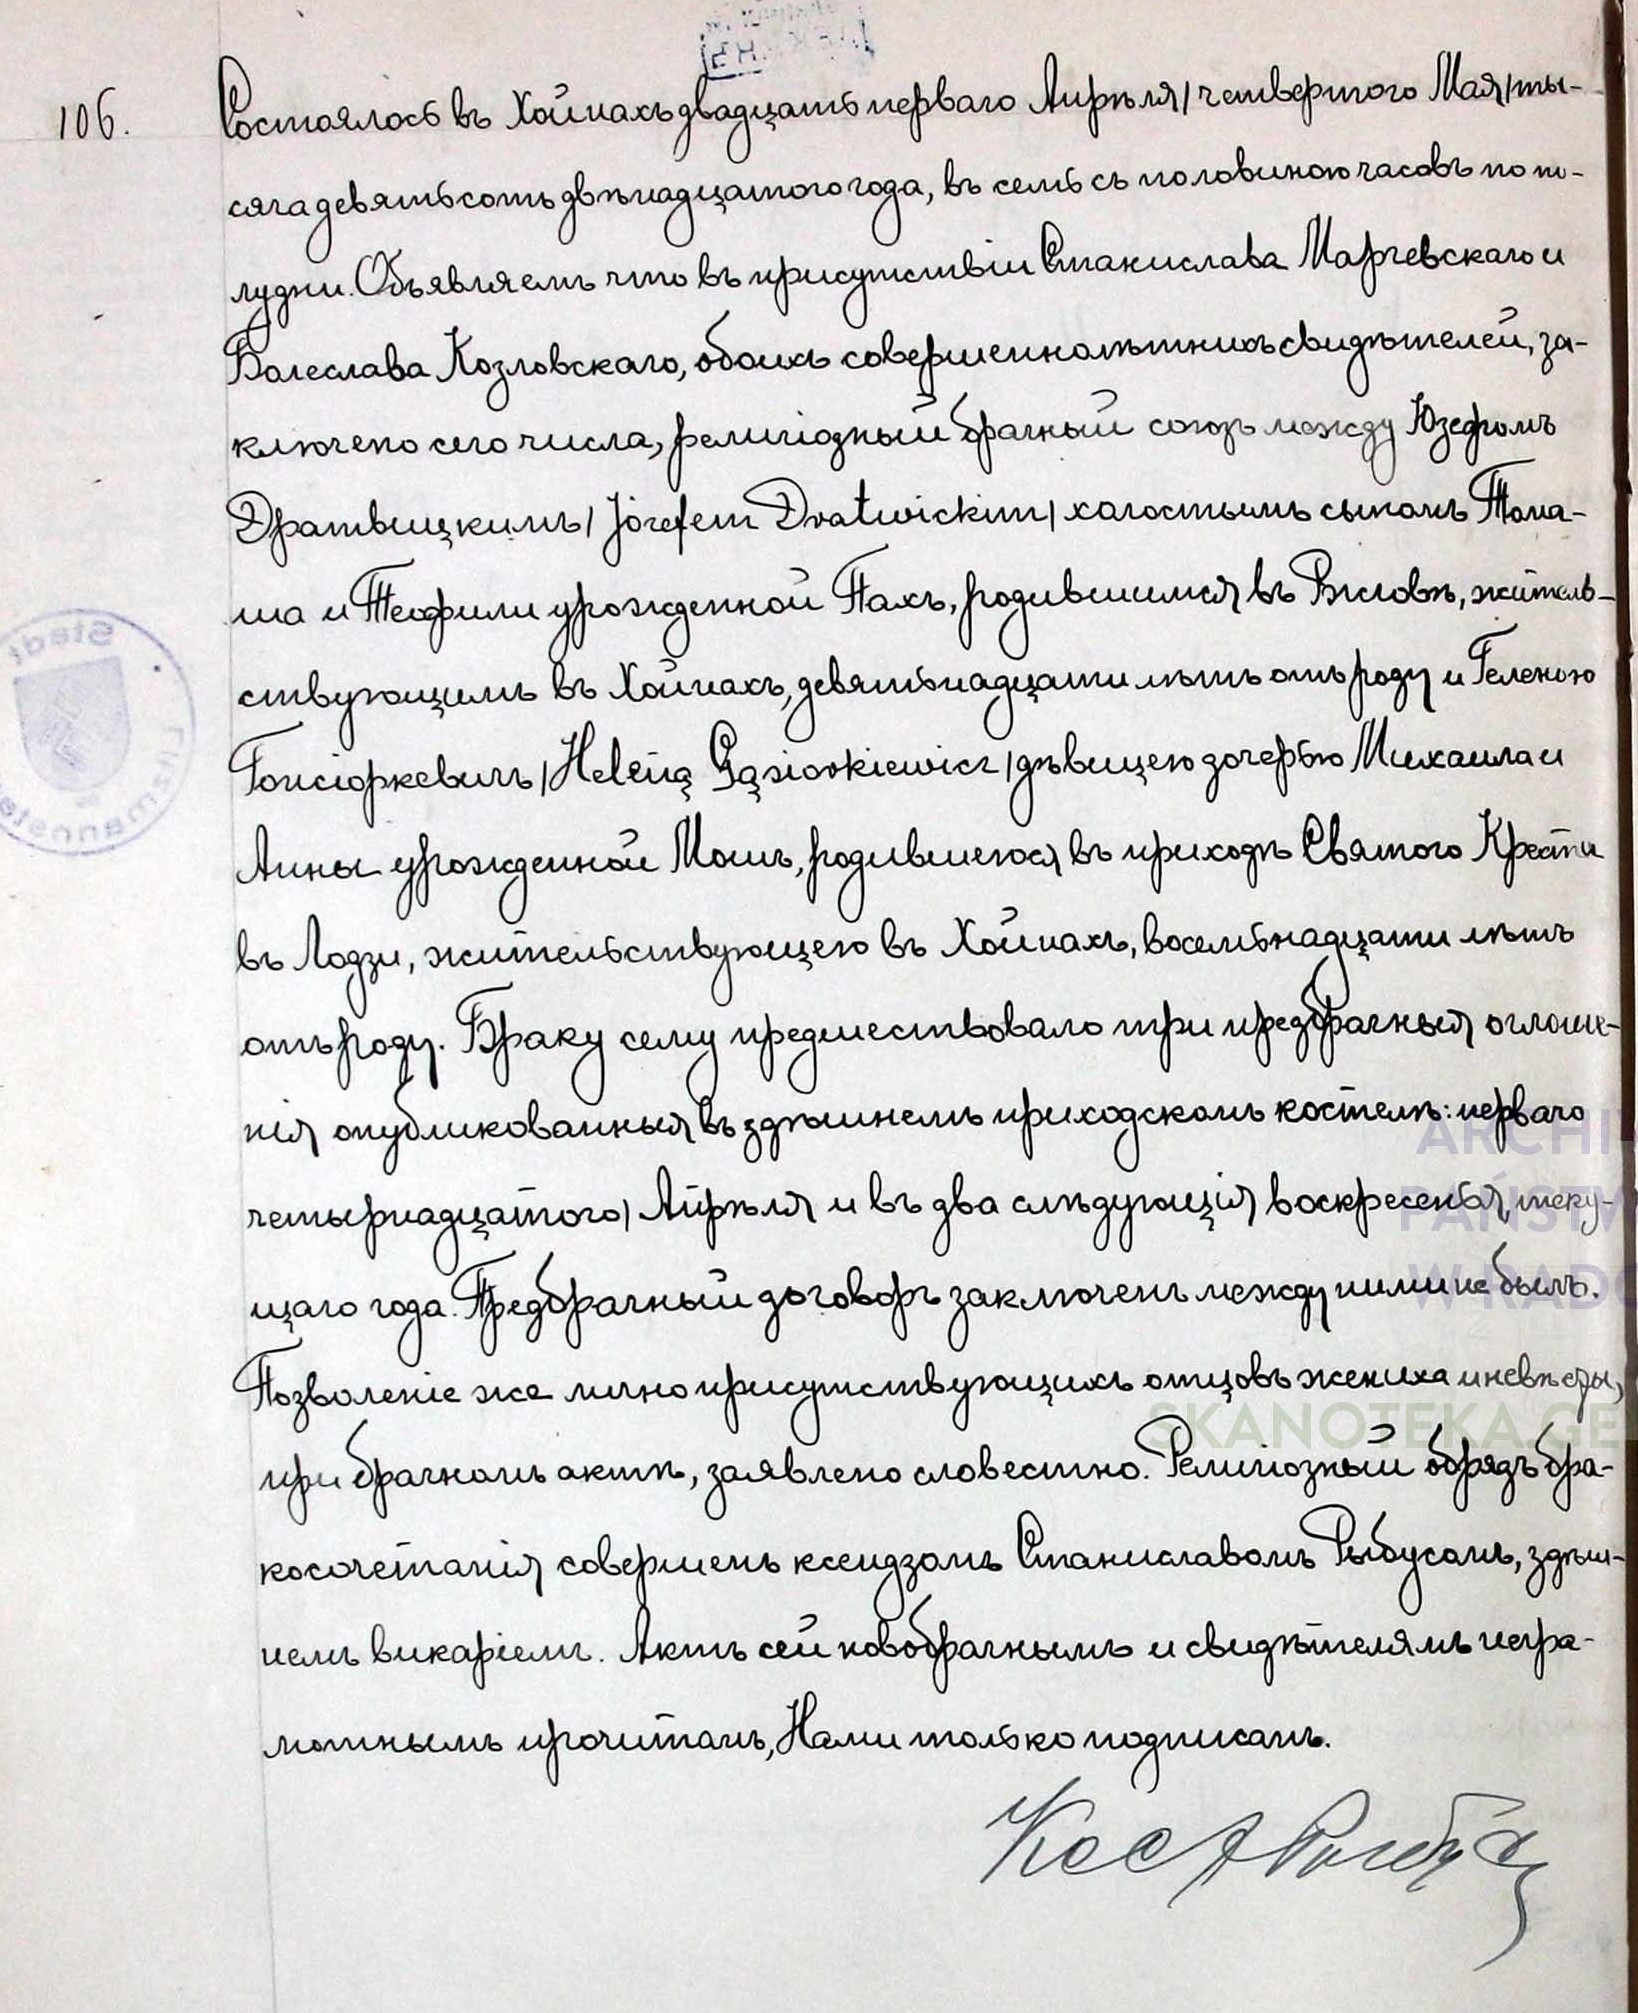 106.
Состоялось въ Хойнахъ двадцать перваго Апрѣля / четвертого Мая / ты-
сяча девятьсотъ двѣнадцатого года, въ семь съ половиною часовъ по по-
лудни. Объявляемъ что въ присутствіи Станислава Марчевскаго и
Болеслава Козловскаго, обоихъ совершеннолѣтнихъ свидѣтелей, за-
ключено сего числа, религіозный брачный союзъ между Юзефомъ
Дратвицкимъ / Józefem Dratwickim / холостымъ сыномъ Тома-
ша и Теофили урожденной Пахъ, родившимся въ Ржговѣ, житель-
ствующимъ въ Хойнахъ, девятьнадцати лѣтъ отъ роду и Геленою
Гонсіоркевичъ / Heleną Gąsiorkiewicz / дѣвицею дочерью Михаила и
Анны урожденной Мошъ, родившеюся въ приходѣ Святого Креста
въ Лодзи, жительствующею въ Хойнахъ, восемьнадцати лѣтъ
отъ роду. Браку сему предшествовало три предбрачныя оглаше-
нія опубликованныя въ здѣшнемъ приходскомъ костелѣ: перваго
четырнадцатого / Апрѣля и въ два слѣдующія воскресенья, теку-
щаго года. Предбрачный договоръ заключенъ между ними не былъ.
Позволеніе же лично присутствующихъ отцовъ жениха и невѣсты,
при брачномъ актѣ, заявлено словестно. Религіозный обрядъ бра-
косочетанія совершенъ ксендзомъ Станиславомъ Рыбусомъ, здѣш-
немъ викаріемъ. Актъ сей новобрачнымъ и свидѣтелямъ негра-
мотнымъ прочитанъ, Нами только подписанъ.
Stadt
ARCHI
PAŃSTW
W RADO
SKANOTEKA.GE